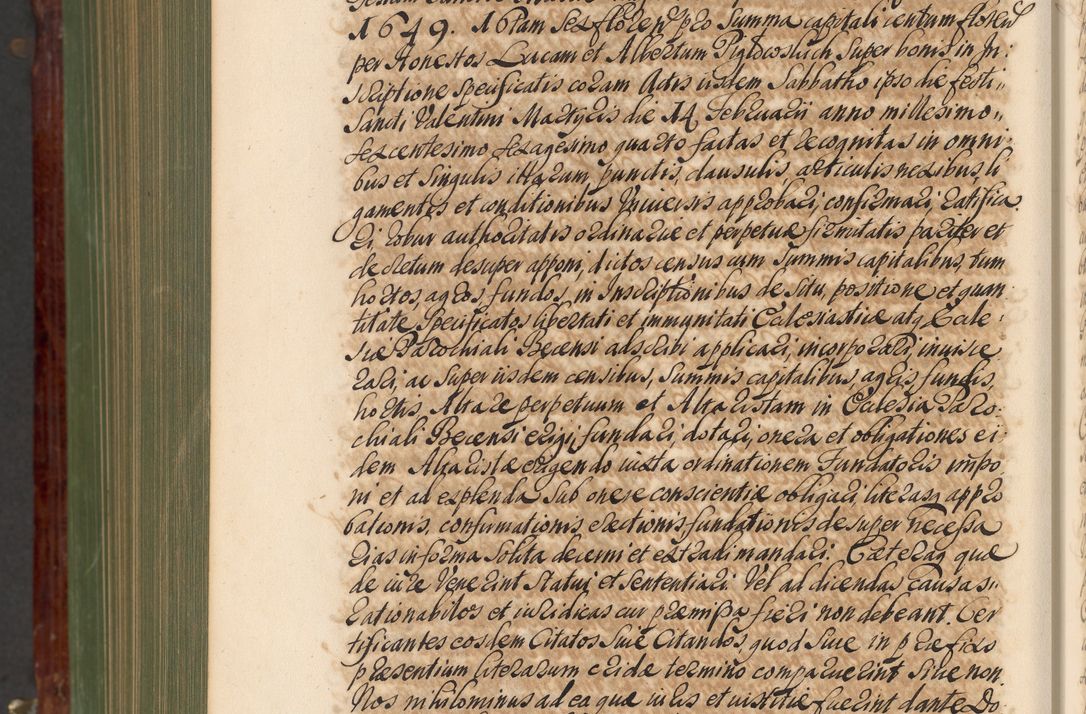 1649. 16tam sex floren pro Summa capitali centum floren
per Honestos Lucam et Albertum super bonis in In:
scriptione specificatis coram Actis iisdem Sabbatho ipso die festi„
Sancti Valentini Martyris die 14 Februarii anno millesimo„
sexcentesimo sexagesimo quarto factas et recognitas in omni„
bus et singulis illarum punctis, clausulis, articulis nexibus, li
gamentis et conditionibus Universis approbari, confirmari, ratifica
ri, robur authoritatis ordinariæ et perpetuæ firmitatis pariter et
decretum desuper apponi, dictos census cum Summis capitalibus, tum
hortos, agros, fundos, in Inscriptionibus de situ, positione et quan
titate specificatos libertati et immunitati Ecclesiasticæ atq Eccle:
siæ Parochiali Becensi adscribi applicari, incorporari, invisce
rari, ac super iisdem censibus, Summis capitalibus, agris, fundis,
hortis, Altare perpetuum et Altaristam in Ecclesia Paro„
chiali Becensi erigi, fundari, dotari, onera et obligationes ei„
dem Altaristæ erigendo iuxta ordinationem Fundatoris impo
ni et ad explenda sub onere conscientiæ obligari literasq appro
bationis, confirmationis erectionis fundationis desuper necessa
rias in forma solita decerni et extradi mandari. Cæteraq quæ
de iure venerint statui et sententiari. Vel ad dicendas causas„
rationabiles et iuridicas cur præmissa fieri non debeant. Cer
tificantes eosdem Citatos sive Citandos, quod sive in præfixo
præsentium literarum cridæ termino comparuerint sive non.
Nos nihilominus ad ea quæ iuris et iustitiæ fuerint dante Do